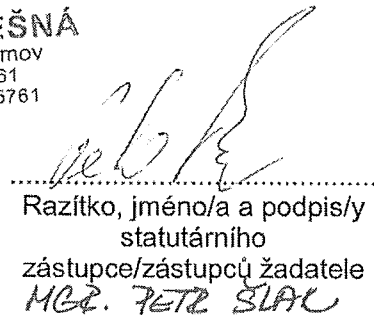 EŠNÁ
mov
61
5761
Razítko, jméno/a a podpis/y
statutárního
zástupce/zástupců žadatele
MGR. PETR